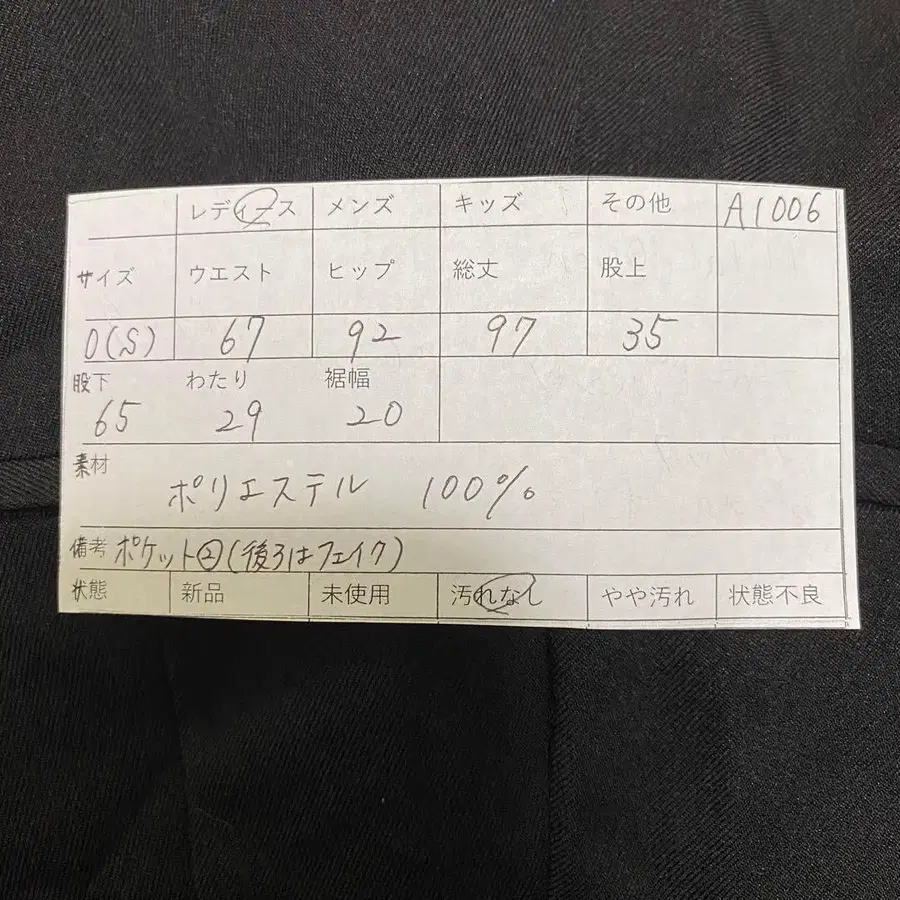 レディース メンズ キッズ その他 A1006
サイズ ウエスト ヒップ 総丈 股上
0(S) 67 92 97 35
股下 わたり 裾幅
65 29 20
素材
ポリエステル 100%
備考 ポケット②(後ろはフェイク)
状態 新品 未使用 汚れなし やや汚れ 状態不良